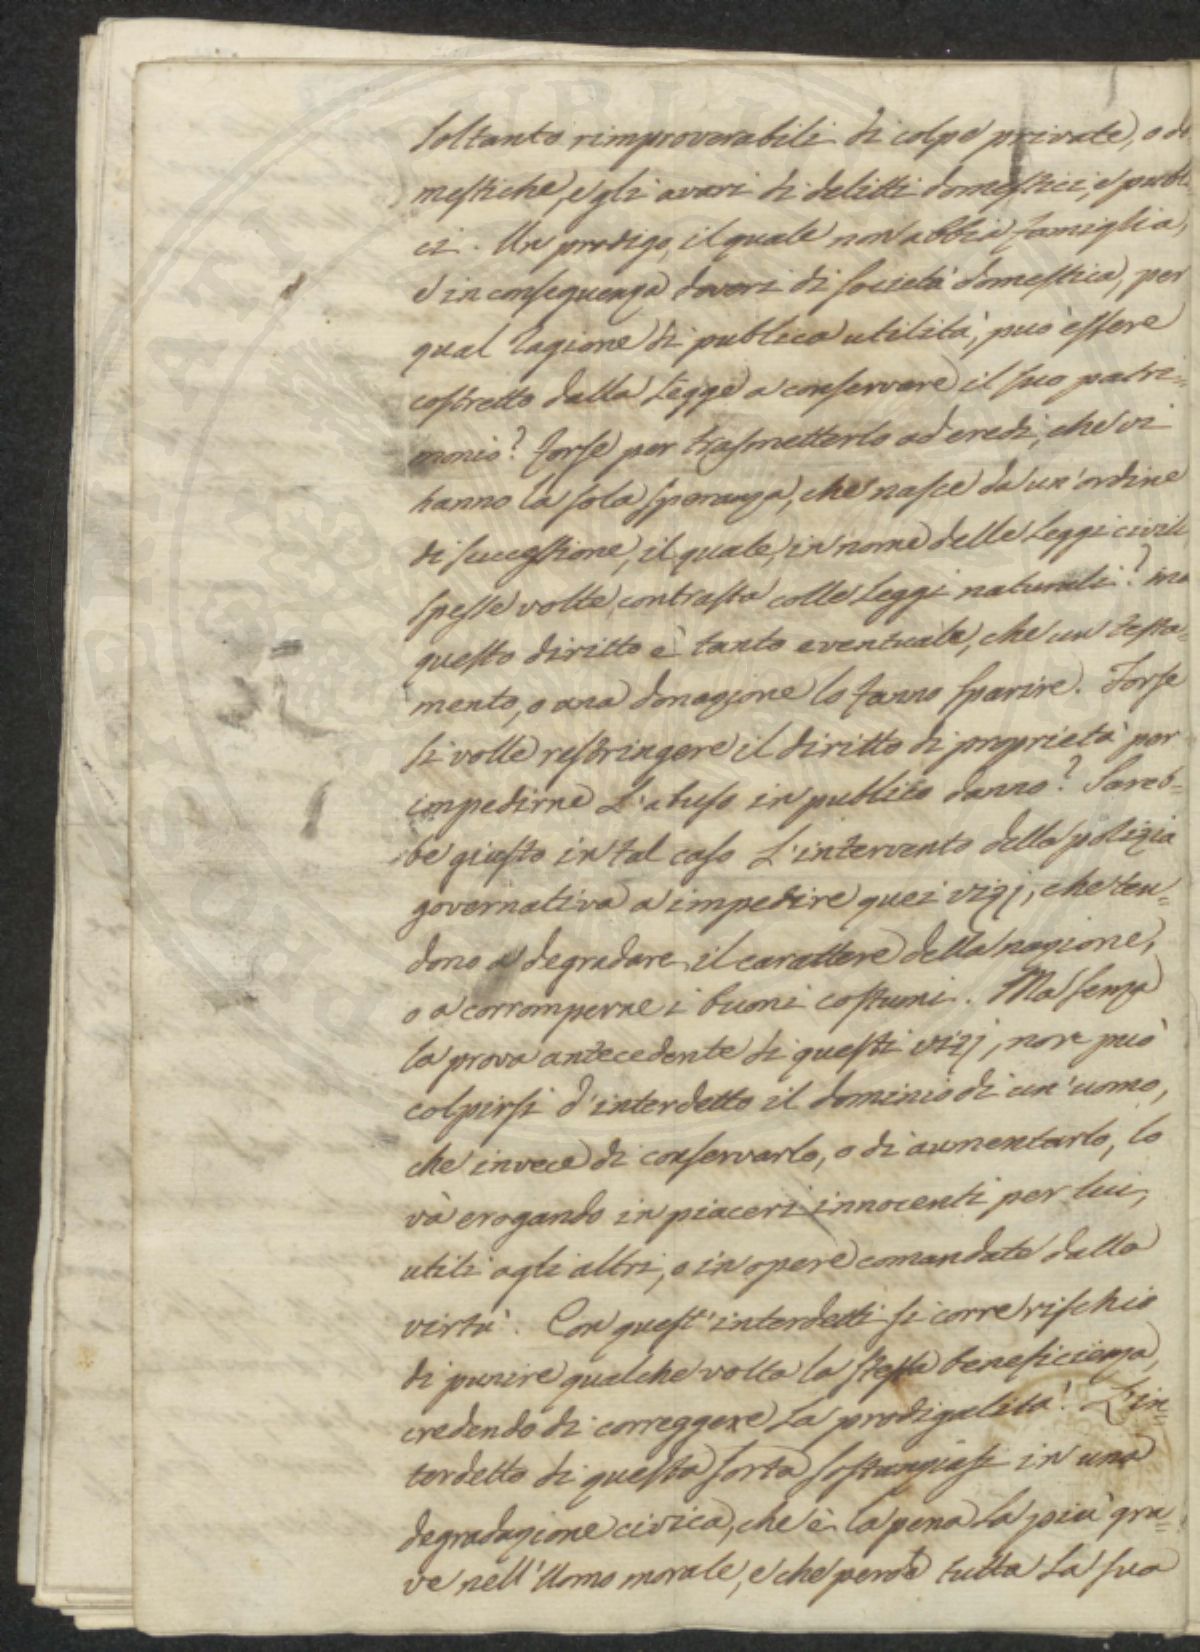 soltanto rimproverabili di colpe private, o do
mestiche, e gli avari di delitti domestici, e publi
ci. Un prodigo, il quale non abbia famiglia,
e in conseguenza doveri di società domestica, per
qual ragione di publica utilità, può essere
costretto dalla Legge a conservare il suo patri=
monio? Forse per trasmetterlo ad eredi, che vi
hanno la sola speranza, che nasce da un'ordine
di successione, il quale, in nome delle Leggi civili
spesse volte contrasta colle Leggi naturali? ma
questo diritto è tanto eventuale, che un testa=
mento, o una donazione lo fanno sparire. Forse
si volle restringere il diritto di proprietà per
impedirne L'abuso in publico danno? Sareb=
be giusto in tal caso L'intervento della polizia
governativa a impedire quei vizj, che ten=
dono a degradare il carattere della nazione,
o a corromperne i buoni costumi. Ma senza
la prova antecedente di questi vizj, non può
colpirsi d'interdetto il dominio di un'uomo,
che invece di conservarlo, o di aumentarlo, lo
và erogando in piaceri innocenti per lui,
utili agli altri, o in opere comandate dalla
virtù. Con quest'interdetti si corre rischio
di punire qualche volta la stessa beneficienza,
credendo di correggere La prodigalità. L'in=
terdetto di questa sorta in una
degradazione civica, che è la pena La più gra=
ve nell'Uomo morale, e che perde tutta La sua